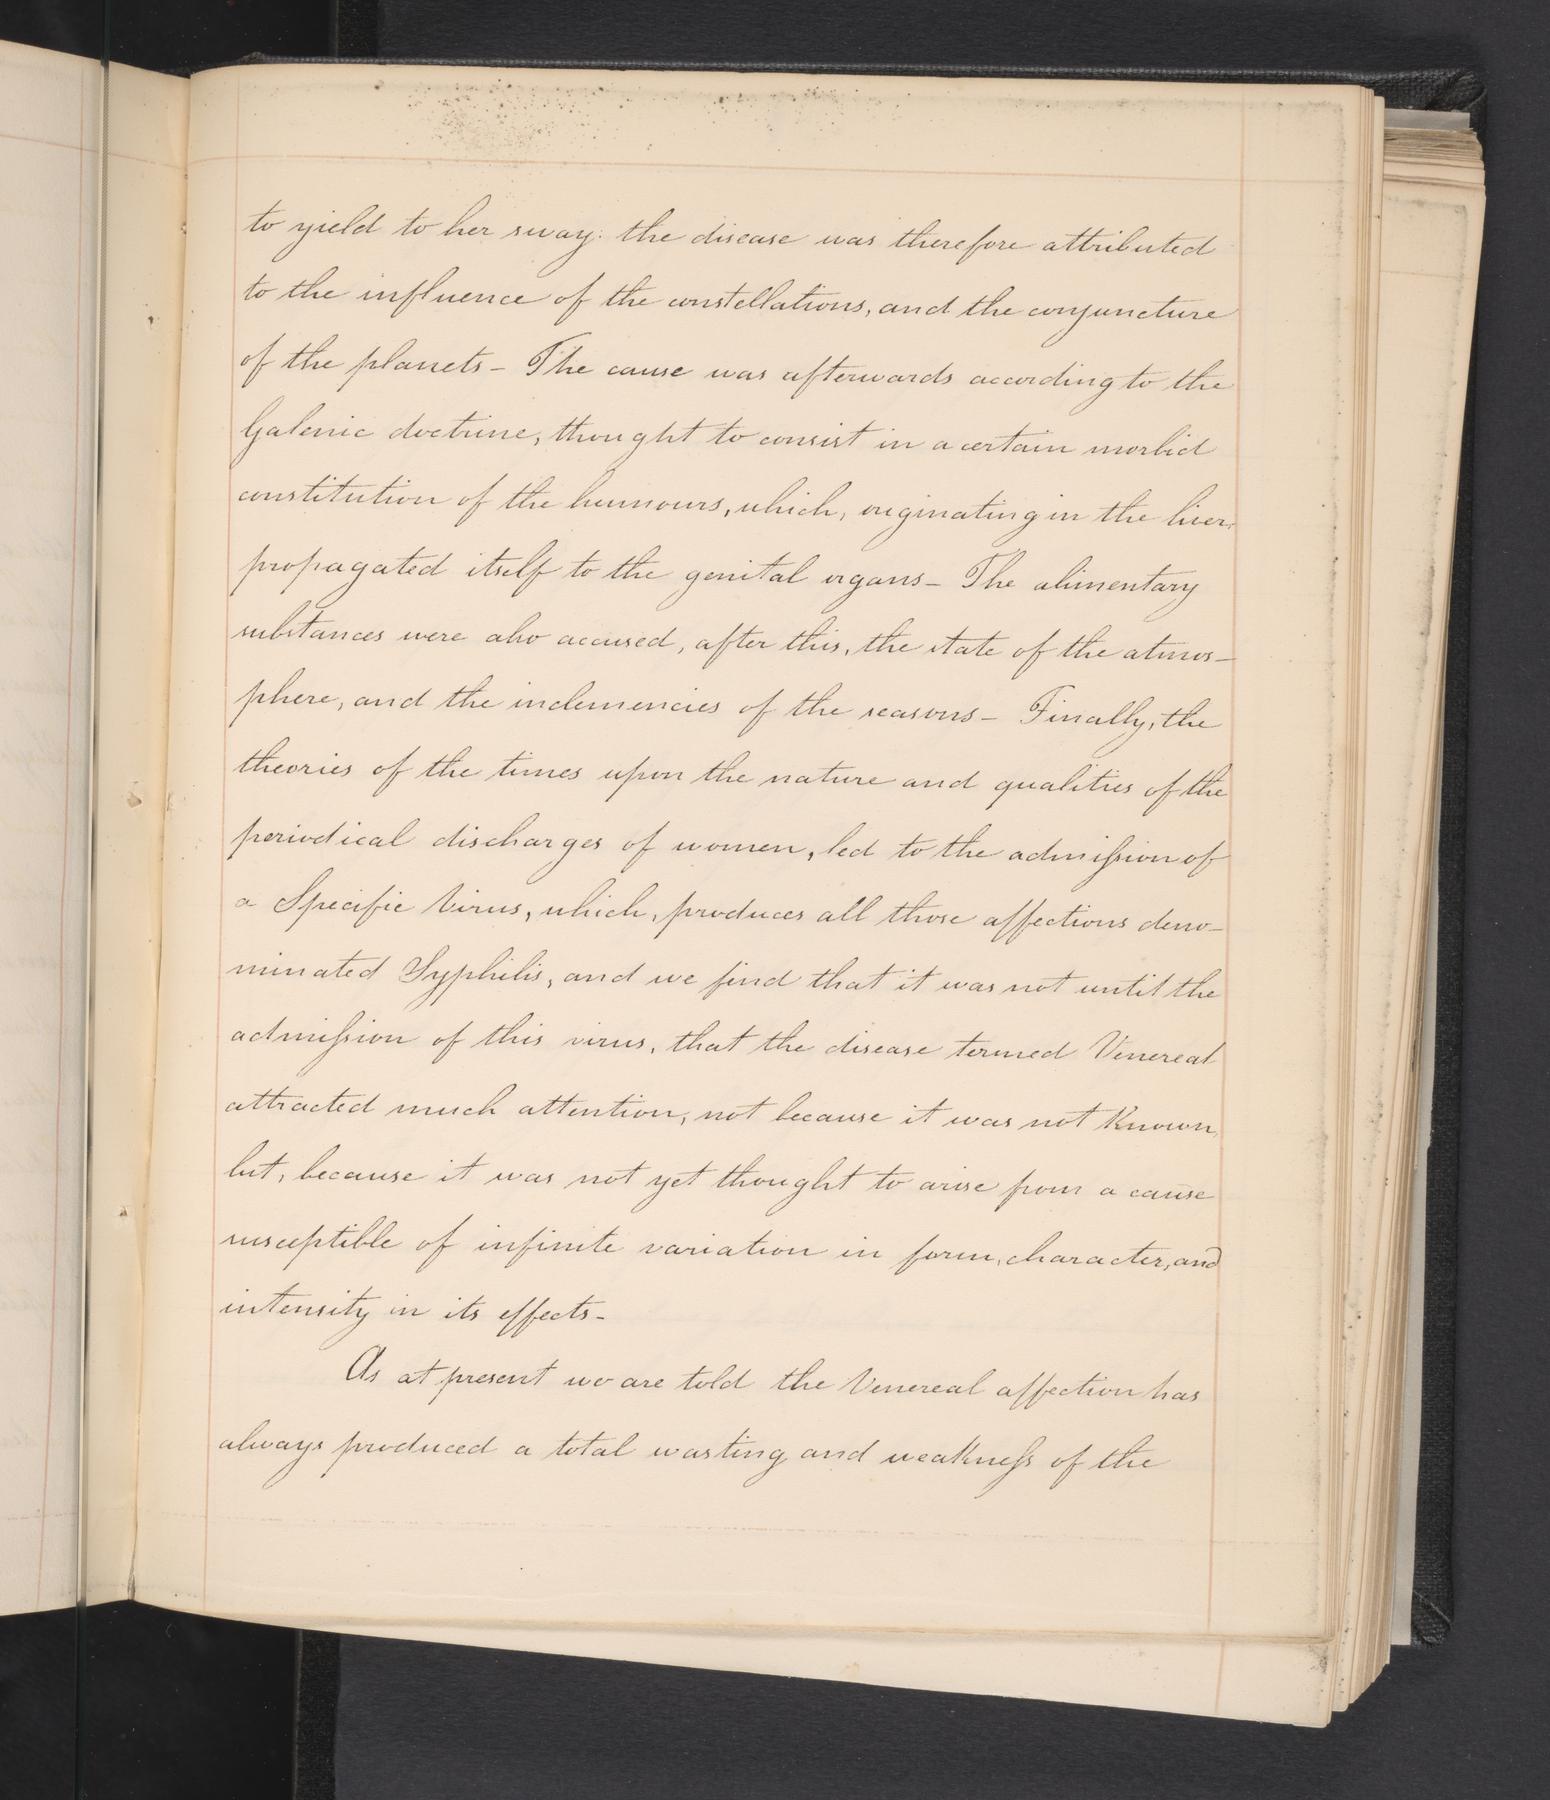 to yield to her sway: the disease was therefore attributed
to the influence of the constellations, and the conjuncture
of the planets – The cause was afterwards according to the
Galenic doctrine, thought to consist in a certain morbid
constitution of the humours, which, originating in the liver,
propagated itself to the genital organs – The alimentary
substances were also accused, after this, the state of the atmos–
phere, and the inclemencies of the seasons – Finally, the
theories of the times upon the nature and qualities of the
periodical discharges of women, led to the admission of
a Specific Virus, which, produces all those affections deno–
minated Syphilis, and we find that it was not until the
admission of this virus, that the disease termed Venereal
attracted much attention, not because it was not Known,
but, because it was not yet thought to arise from a cause
susceptible of infinite variation in form, character, and
intensity in its effects –
As at present we are told the Venereal affection has
always produced a total wasting and weakness of the